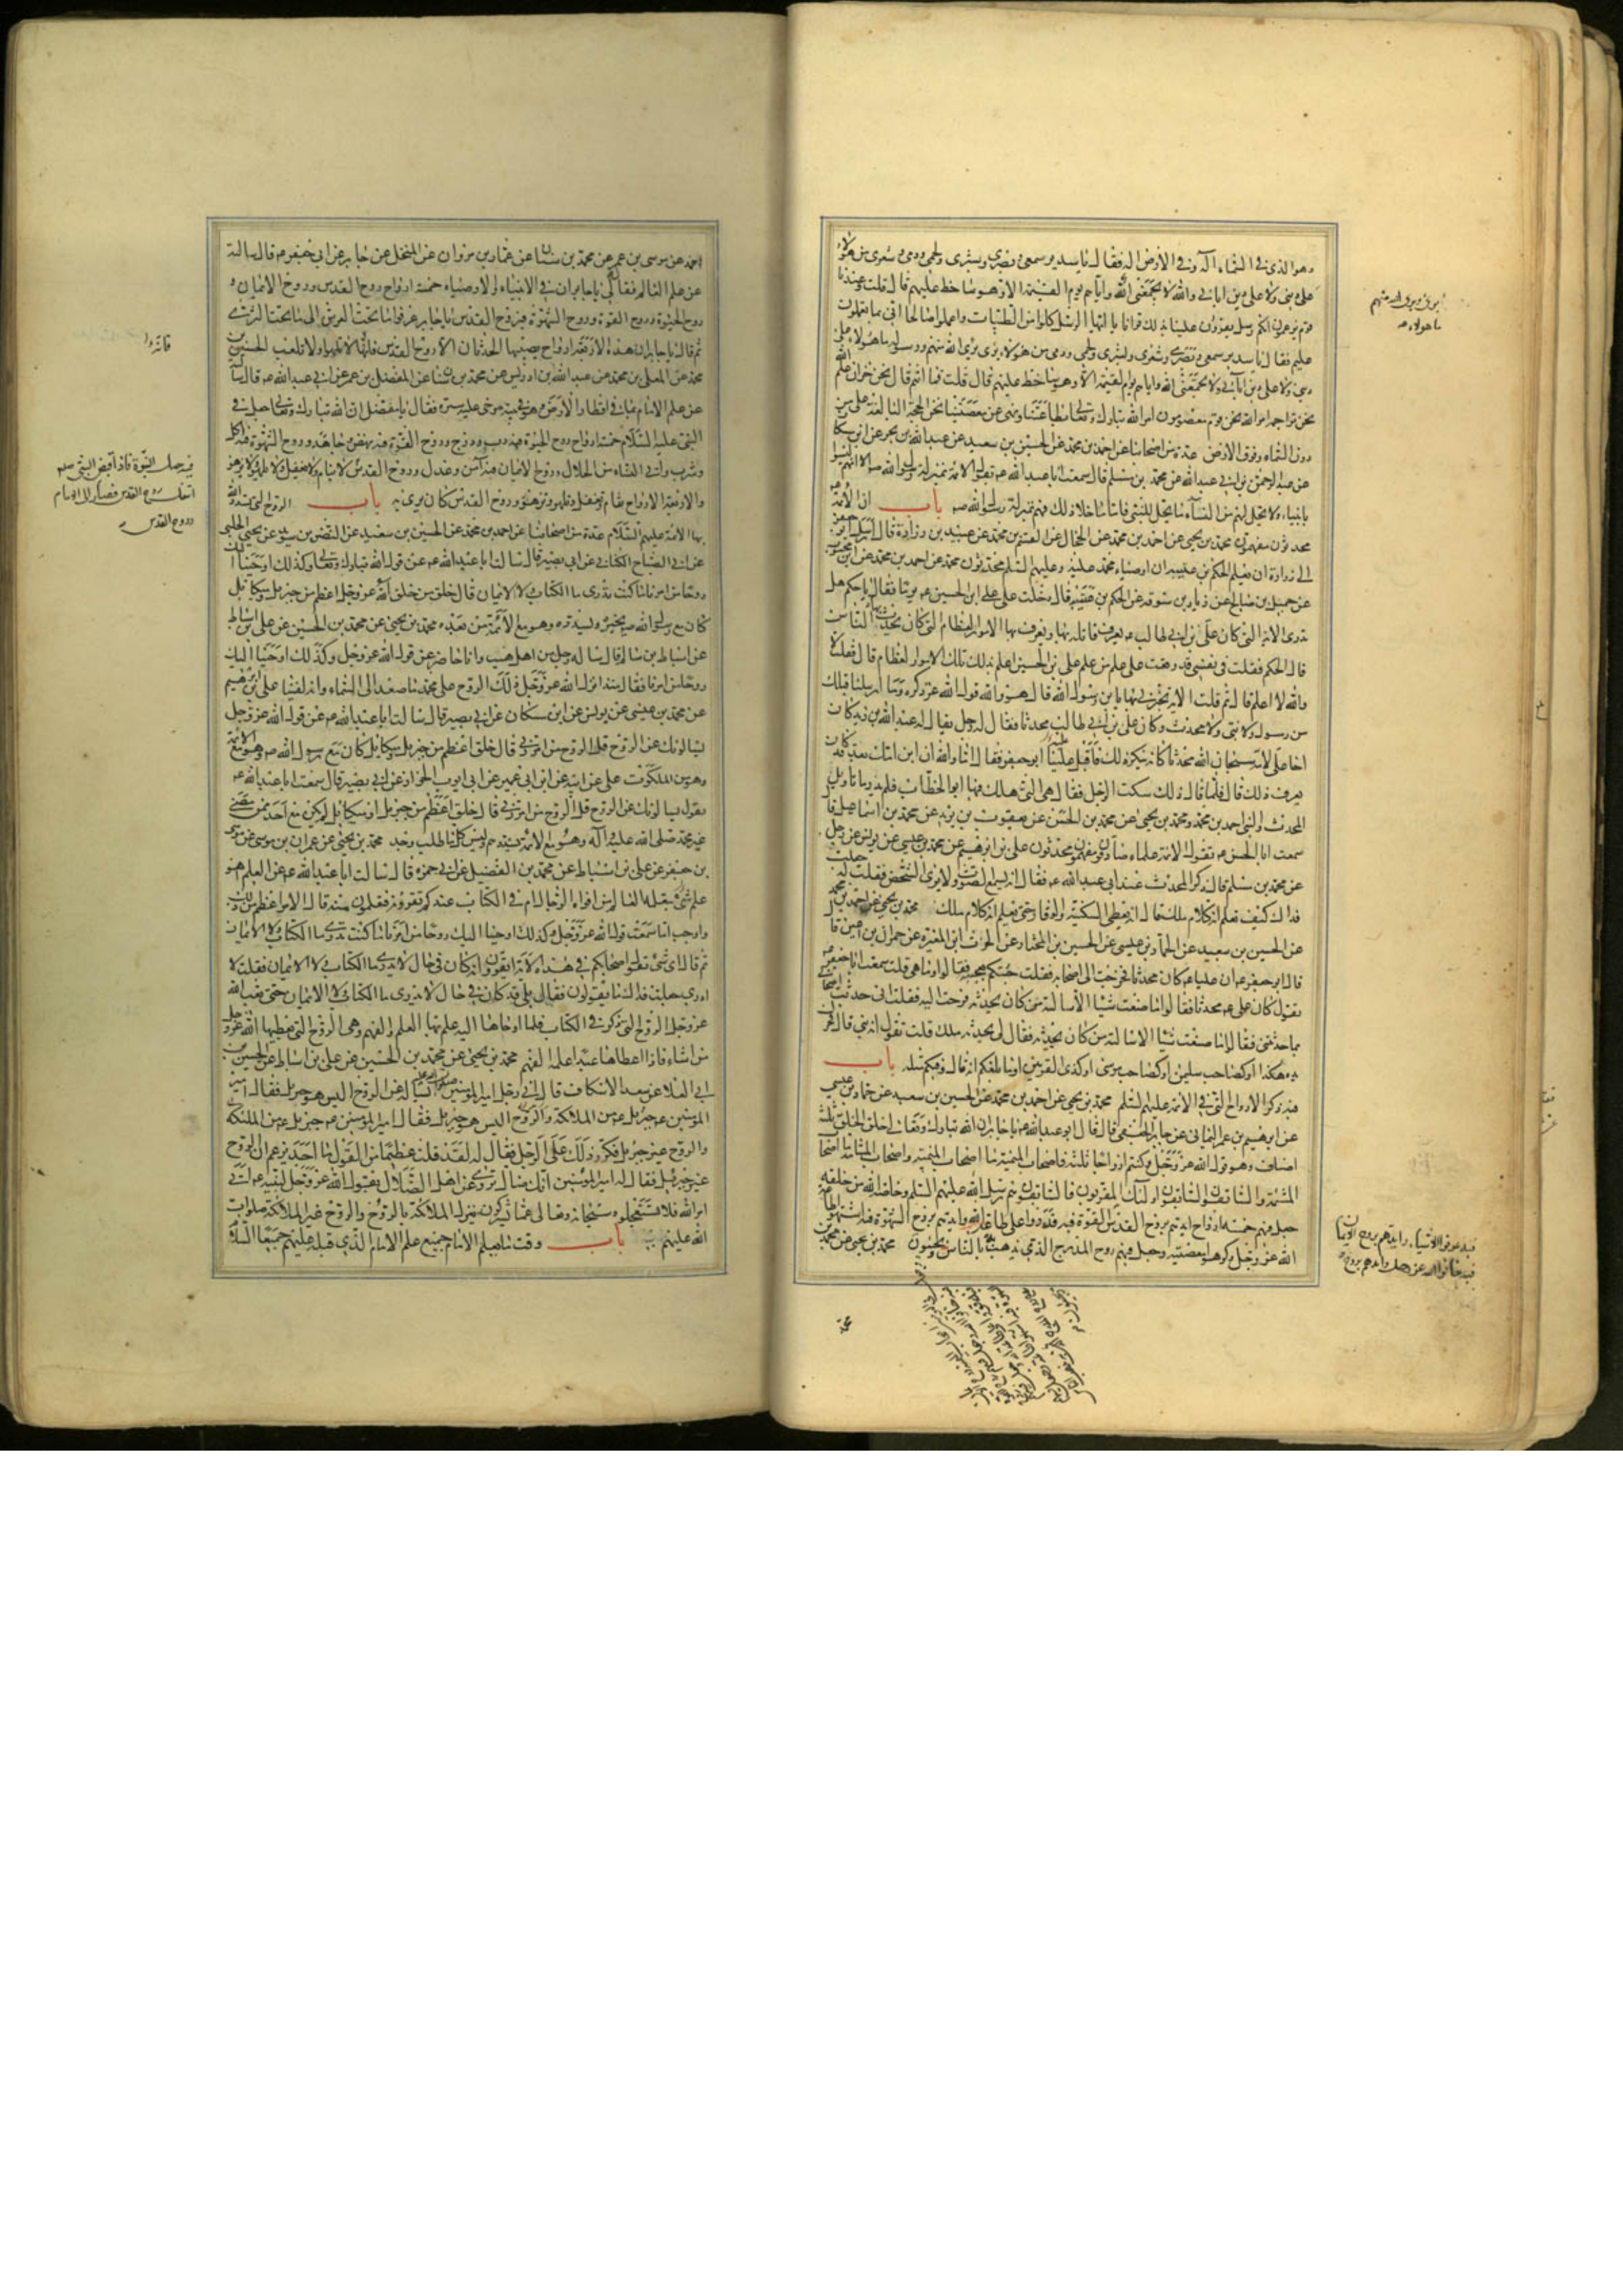 وهو الذي في السماء اله وفي الارض اله فقال يا سدير سمعي وبصري وبشري ولحمي ودمي وشعري من هؤلاء
على ديني ولا على دين ابائي والله لا يجمعني الله واياهم يوم القيمة الا وهو ساخط عليهم قال قلت وعندنا
قوم يزعمون انكم رسل يقرؤن علينا بذلك قرانا يا ايها الرسل كلوا من الطيبات واعملوا صالحا اني بما تعملون
عليم فقال يا سدير سمعي وبصري وشعري وبشري ولحمي ودمي من هؤلاء بري برئ الله منهم ورسوله ما هؤلاء على
ديني ولا على دين ابائي ولا يجمعني الله واياهم يوم القيمة الا وهو ساخط عليهم قال قلت فما انتم قال نحن خزان علم الله
نحن تراجمة امر الله نحن قوم معصومون امر الله تبارك وتعالى بطاعتنا ونهى عن معصيتنا نحن الحجة البالغة على من
دون السماء وفوق الارض عدة من اصحابنا عن احمد بن محمد عن الحسين بن سعيد عن عبد الله بن بحر عن ابن مسكان
عن عبد الرحمن بن ابي عبد الله عن محمد بن مسلم قال سمعت ابا عبد الله عم يقول الائمة بمنزلة رسول الله صم الا انهم ليسوا
بانبياء ولا يحل لهم من النساء ما يحل للنبي فاما ما خلا ذلك فهم بمنزلة رسول الله صم باب ان الائمة
محدثون مفهمون محمد بن يحيى عن احمد بن محمد عن الحجال عن القسم بن محمد عن عبيد بن زرارة قال ارسل ابو جعفر
الى زرارة ان يعلم الحكم بن عتيبة ان اوصياء محمد عليه وعليهم السلم محدثون محمد عن احمد بن محمد عن ابن محبوب
عن جميل بن صالح عن زياد بن سوقة عن الحكم بن عتيبة قال دخلت على علي ابن الحسين عم يوما فقال يا حكم هل
تدري الاية التي كان علي بن ابي طالب عم يعرف قاتله بها ويعرف بها الامور العظام التي كان يحدث بها الناس
قال الحكم فقلت في نفسي قد وقعت على علم من علم علي بن الحسين اعلم بذلك تلك الامور العظام قال فقلت لا
والله لا اعلم قال ثم قلت الاية تخبرني بها يا بن رسول الله قال هو والله قول الله عز ذكره وما ارسلنا قبلك
من رسول ولا نبي ولا محدث وكان علي بن ابي طالب محدثا فقال له رجل يقال له عبد الله بن زيد كان
اخا علي لامه سبحان الله محدثا كانه ينكر ذلك فاقبل علينا ابو جعفر فقال اما والله ان ابن امك بعد قد كان
يعرف ذلك قال فلما قال ذلك سكت الرجل فقال هي التي هلك فيها ابو الخطاب فلم يدر ما تاويل
المحدث والنبي احمد بن محمد ومحمد بن يحيى عن محمد بن الحسن عن يعقوب بن يزيد عن محمد بن اسماعيل قال
سمعت ابا الحسن عم يقول الائمة علماء صادقون مفهمون محدثون علي بن ابراهيم عن محمد بن عيسى عن يونس عن رجل
عن محمد بن مسلم قال ذكر المحدث عند ابي عبد الله عم فقال انه يسمع الصوت ولا يرى الشخص فقلت له جعلت
فداك كيف يعلم انه كلام ملك قال انه يعطى السكينة والوقار حتى يعلم انه كلام ملك محمد بن يحيى عن احمد بن محمد
عن الحسين بن سعيد عن الحماد بن عيسى عن الحسين بن المختار عن الحرث ابن المغيرة عن حمران بن اعين قال
قال ابو جعفر عم ان عليا عم كان محدثا فخرجت الى اصحابه فقلت جئتكم بعجيبة فقالوا وما هي قلت سمعت ابا جعفر عم
يقول كان علي عم محدثا فقالوا ما صنعت شيئا الا سالته من كان يحدثه فرجعت اليه فقلت اني حدثت اصحابي
بما حدثتني فقالوا ما صنعت شيئا الا سالته من كان يحدثه فقال لي يحدثه ملك قلت تقول انه نبي قال فحرك
يده هكذا او كصاحب سليمن او كصاحب موسى او كذي القرنين اوما بلغكم انه قال وفيكم مثله باب
فيه ذكر الارواح التي في الائمة عليهم السلم محمد بن يحيى عن احمد بن محمد عن الحسين بن سعيد عن حماد بن عيسى
عن ابرهيم بن عمر اليماني عن جابر الجعفي قال قال ابو عبد الله عم يا جابر ان الله تبارك وتعالى خلق الخلق ثلثة
اصناف وهو قول الله عز وجل وكنتم ازواجا ثلثة فاصحاب الميمنة ما اصحاب الميمنة واصحاب المشئمة ما اصحاب
المشئمة والسابقون السابقون اولئك المقربون فالسابقون هم رسل الله عليهم السلم وخاصة الله من خلقه
جعل فيهم خمسة ارواح ايدهم بروح القدس القوة فبه قدروا على طاعة الله وايدهم بروح الشهوة فبه اشتهوا طاعة
الله عز وجل وكرهوا معصيته وجعل فيهم روح المدرج الذي به يذهب الناس ويجيئون محمد بن يحيى عن محمد بن
ما هؤلاء
فبه عرفوا الاشياء وايدهم بروح الايمان
فبه خافوا الله عز وجل وايدهم بروح
احمد عن موسى بن عمر عن محمد بن سنان عن عمار بن مروان عن المنخل عن جابر عن ابي جعفر عم قال سالته
عن علم العالم فقال لي يا جابر ان في الانبياء والاوصياء خمسة ارواح روح القدس وروح الايمان و
روح الحيوة وروح القوة وروح الشهوة فبروح القدس يا جابر عرفوا ما تحت العرش الى ما تحت الثرى
ثم قال يا جابر ان هذه الاربعة ارواح يصيبها الحدثان الا روح القدس فانها لا تلهو ولا تلعب الحسين بن
محمد عن المعلى بن محمد عن عبد الله بن ادريس عن محمد بن سنان عن المفضل بن عمر عن ابي عبد الله عم قال سالته
عن علم الامام بما في اقطار الارض وهو في بيته مرخى عليه ستره فقال يا مفضل ان الله تبارك وتعالى جعل في
النبي عليه السلام خمسة ارواح روح الحيوة فبه دب ودرج وروح القوة فبه نهض وجاهد وروح الشهوة فبه اكل
وشرب واتى النساء من الحلال وروح الايمان فبه آمن وعدل وروح القدس لا ينام ولا يغفل ولا يلهو ولا يزهو
والاربعة الارواح تنام وتغفل وتلهو وتزهو وروح القدس كان يرى به باب الروح التي يسدد الله
بها الائمة عليهم السلام عدة من اصحابنا عن احمد بن محمد عن الحسين بن سعيد عن النضر بن سويد عن يحيى الحلبي
عن ابي الصباح الكناني عن ابي بصير قال سالت ابا عبد الله عم عن قول الله تبارك وتعالى وكذلك اوحينا اليك
روحا من امرنا ما كنت تدري ما الكتاب ولا الايمان قال خلق من خلق الله عز وجل اعظم من جبرئيل وميكائيل
كان مع رسول الله صم يخبره ويسدده وهو مع الائمة من بعده محمد بن يحيى عن محمد بن الحسين عن علي بن اسباط
عن اسباط بن سالم قال ساله رجل من اهل هيت وانا حاضر عن قول الله عز وجل وكذلك اوحينا اليك
روحا من امرنا فقال منذ انزل الله عز وجل ذلك الروح على محمد ما صعد الى السماء وانه لفينا علي بن ابرهيم
عن محمد بن عيسى عن يونس عن ابن مسكان عن ابي بصير قال سالت ابا عبد الله عم عن قول الله عز وجل
يسالونك عن الروح قل الروح من امر ربي قال خلق اعظم من جبرئيل وميكائيل كان مع رسول الله صم وهو مع الائمة
وهو من الملكوت علي عن ابيه عن ابن ابي عمير عن ابي ايوب الخزاز عن ابي بصير قال سمعت ابا عبد الله عم
يقول يسالونك عن الروح قل الروح من امر ربي قال خلق اعظم من جبرئيل وميكائيل لم يكن مع احد ممن مضى
غير محمد صلى الله عليه وآله وهو مع الائمة يسددهم وليس كل ما طلب وجد محمد بن يحيى عن عمران بن موسى عن موسى
بن جعفر عن علي بن اسباط عن محمد بن الفضيل عن ابي حمزة قال سالت ابا عبد الله عم عن العلم اهو
علم شيء يتعلمه العالم من افواه الرجال ام في الكتاب عندكم تقرؤنه فتعلمون منه قال الامر اعظم من ذلك
واوجب اما سمعت قول الله عز وجل وكذلك اوحينا اليك روحا من امرنا ما كنت تدري ما الكتاب ولا الايمان
ثم قال اي شئ يقول اصحابكم في هذه الاية ايقرون انه كان في حال لا يدري ما الكتاب ولا الايمان فقلت لا
ادري جعلت فداك ما يقولون فقال بلى قد كان في حال لا يدري ما الكتاب ولا الايمان حتى بعث الله
عز وجل الروح التي ذكر في الكتاب فلما اوحاها اليه علم بها العلم والفهم وهي الروح التي يعطيها الله عز وجل
من شاء فاذا اعطاها عبدا علمه الفهم محمد بن يحيى عن محمد بن الحسين عن علي بن اسباط عن الحسين بن
ابي العلا عن سعد الاسكاف قال اتى رجل امير المؤمنين يساله عن الروح اليس هو جبرئيل فقال له امير
المؤمنين عم جبرئيل عم من الملائكة والروح غير جبرئيل
والروح غير جبرئيل فكرر ذلك على الرجل فقال له لقد قلت عظيما من القول ما احد يزعم ان الروح
غير جبرئيل فقال له امير المؤمنين انك ضال تروي عن اهل الضلال يقول الله عز وجل لنبيه عم اتى
امر الله فلا تستعجلوه سبحانه وتعالى عما يشركون ينزل الملائكة بالروح والروح غير الملائكة صلوات
الله عليهم باب وقت ما يعلم الامام جميع علم الامام الذي قبله عليهم جميعا السلام
فيه حمل النبوة فاذا قبض النبي صلم
انتقل روح القدس فصار الى الامام
وروح القدس